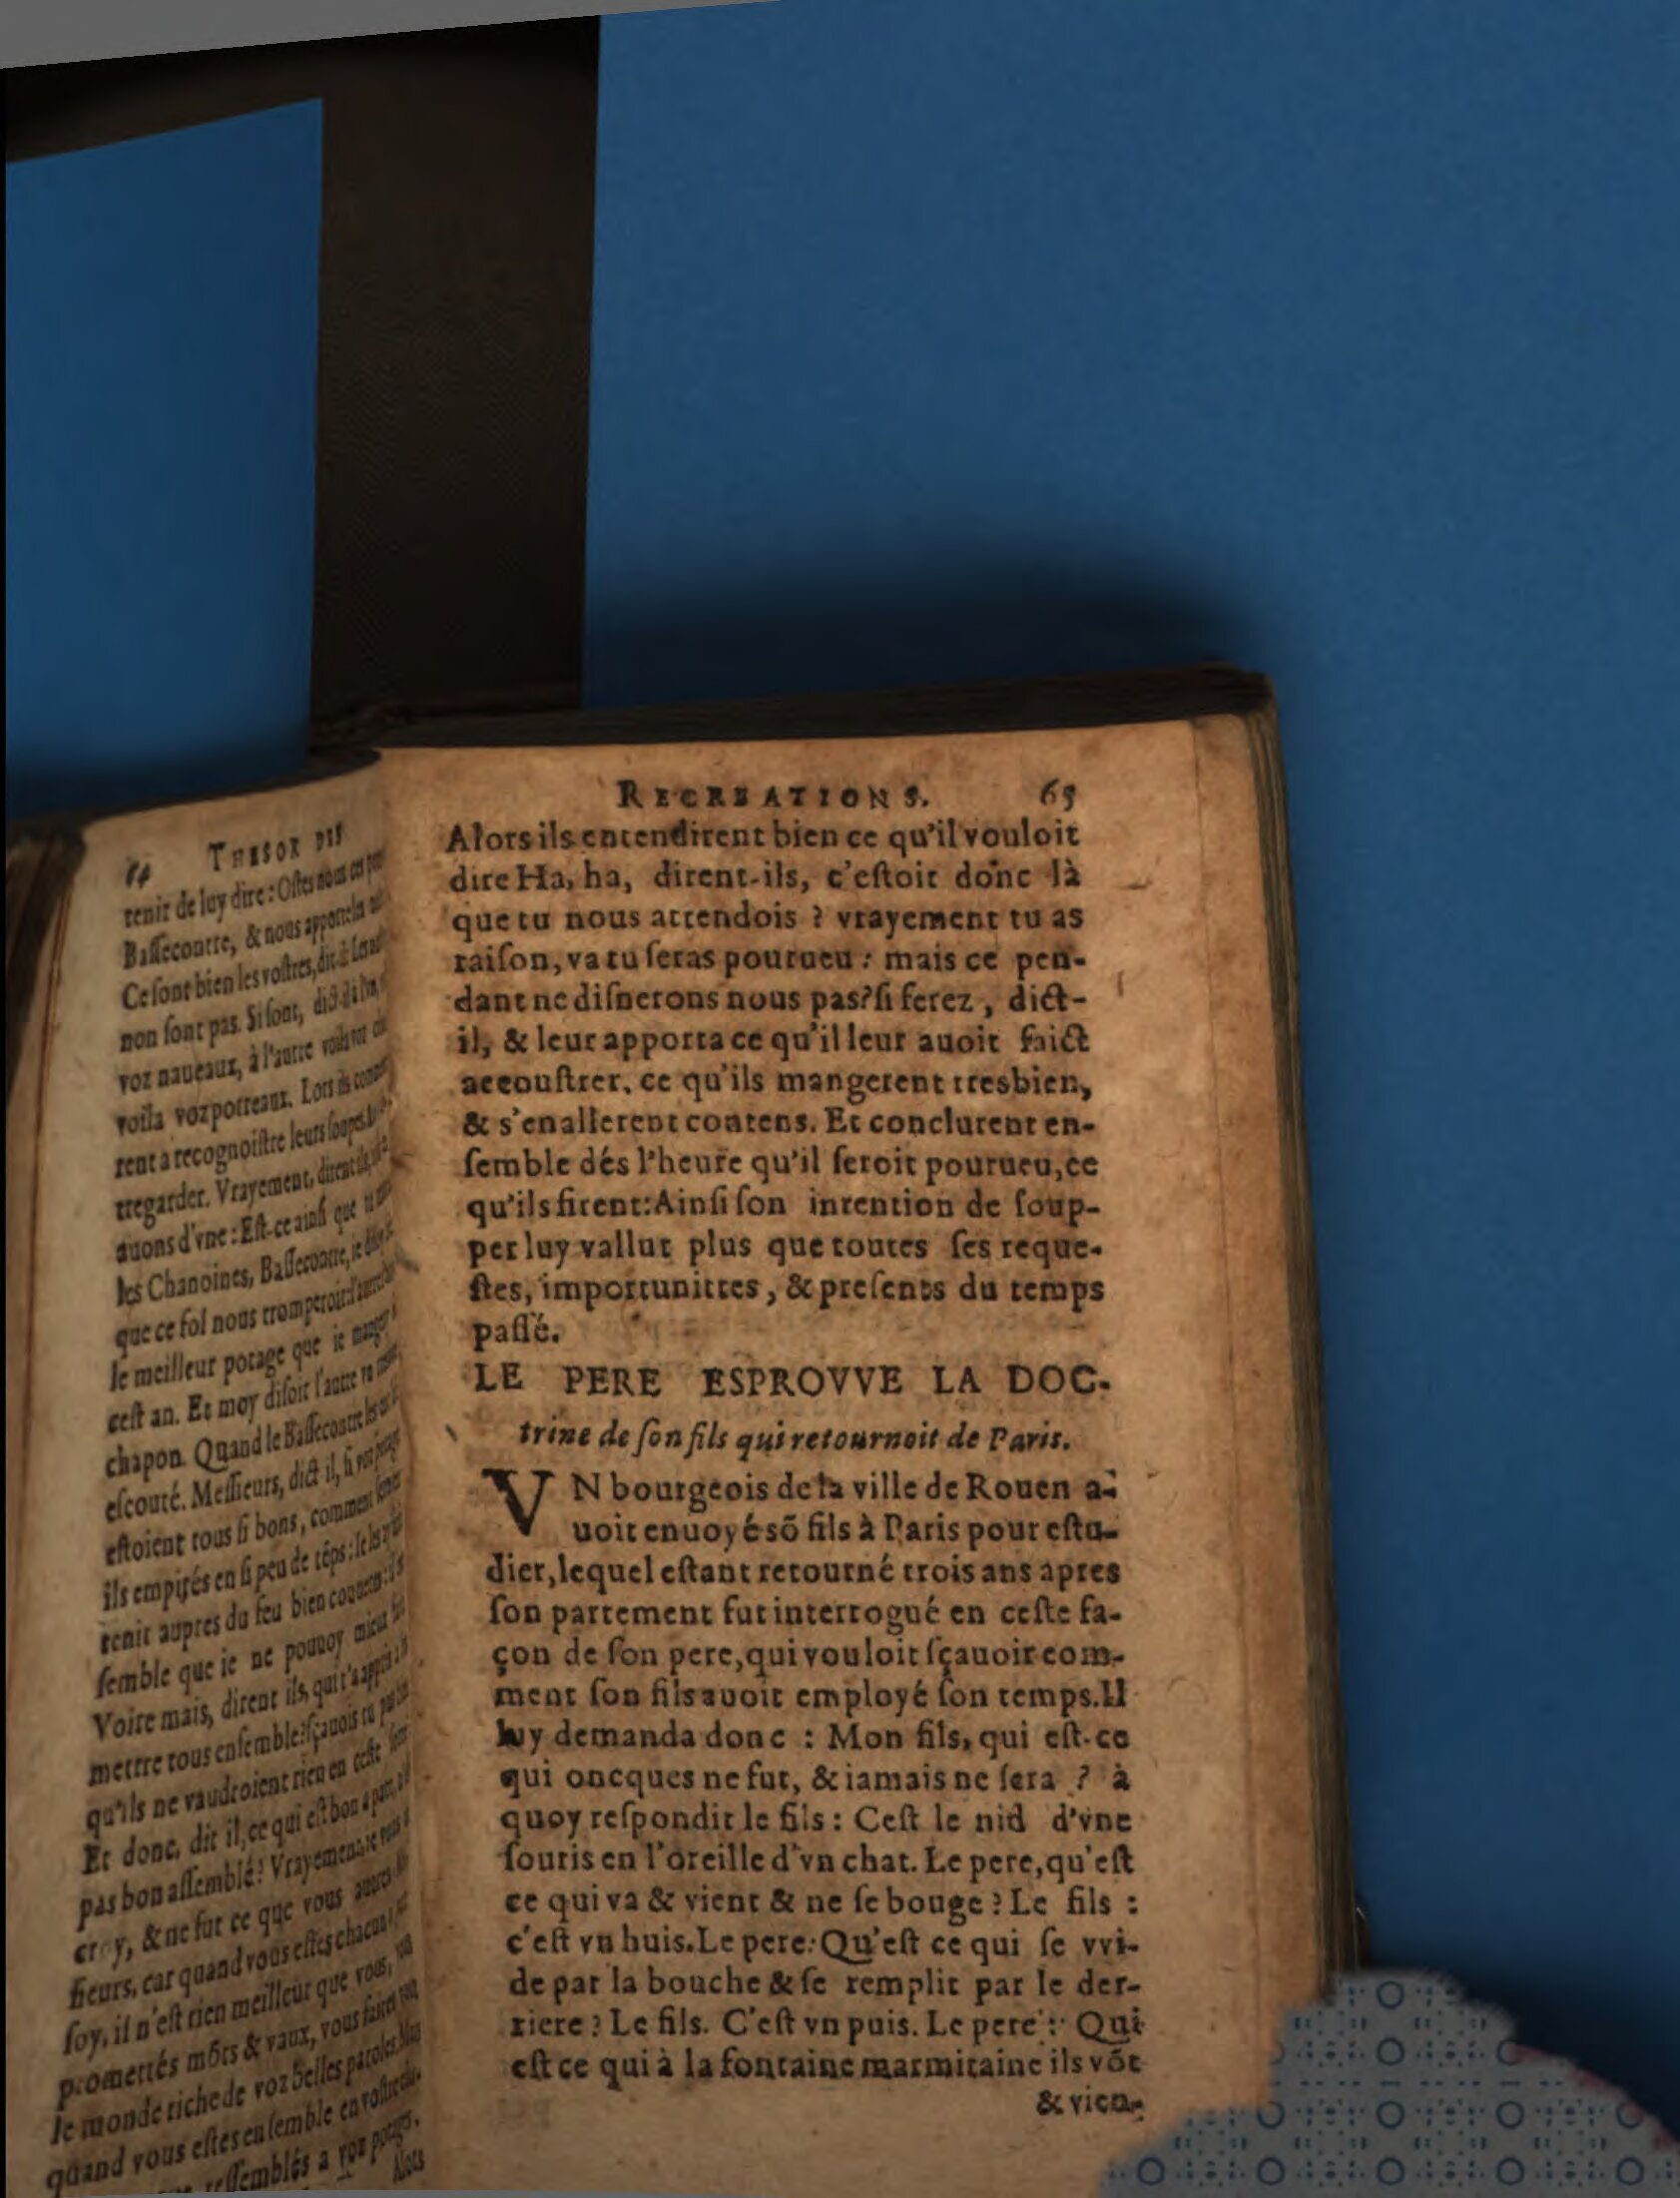 64 THRESOR DES
tenir de luy dire : Ostes nous ces
Bassecontre, & nous apportes
Ce sont bien les vostres, dit-il
non sont pas. Si sont, dict-il
voz naueaux, à l'autre voila
voila voz porreaux. Lors ils
rent a recognoistre leurs soupes
tregarder. Vrayement, dirent ils,
auons d'vne : Est-ce ainsi que
les Chanoines, Bassecontre, ie
que ce fol nous tromperoit
le meilleur potage que ie mangeay
cest an. Et moy disoit l'autre vn
chapon. Quand le Bassecontre les
escouté. Messieurs, dict il, si voz
estoient tous si bons, comment
ils empirés en si peu de tēps : ie les
tenir aupres du feu bien
semble que ie ne pouuoy mieux
Voire mais, dirent ils, qui t'a appris
mettre tous ensemble? sçauois tu
qu'ils ne vaudroient rien en ceste
Et donc, dit il, ce qui est bon a part,
pas bon assemblé? Vrayement ie vous
croy, & ne fut ce que vous autres
sieurs, car quand vous estes chacun
soy, il n'est rien meilleur que vous, vous
promettés mōts & vaux, vous faictes
le monde riche de voz belles paroles. Mais
quand vous estes ensemble en vostre
ressemblés a voz potages.
Alors
RECREATIONS. 65
Alors ils entendirent bien ce qu'il vouloit
dire Ha, ha, dirent-ils, c'estoit donc là
que tu nous attendois ? vrayement tu as
raison, va tu seras pourueu : mais ce pen-
dant ne disnerons nous pas? si ferez , dict-
il, & leur apporta ce qu'il leur auoit faict
accoustrer, ce qu'ils mangerent tresbien,
& s'enallerent contens. Et conclurent en-
semble dés l'heure qu'il seroit pourueu, ce
qu'ils firent: Ainsi son intention de soup-
per luy vallut plus que toutes ses reque-
stes, importunittes , & presents du temps
passé.
LE PERE ESPROVVE LA DOC-
trine de son fils qui retournoit de Paris.
VN bourgeois de la ville de Rouen a-
uoit enuoyé sō fils à Paris pour estu-
dier, lequel estant retourné trois ans apres
son partement fut interrogué en ceste fa-
çon de son pere, qui vouloit sçauoir com-
ment son fils auoit employé son temps. Il
luy demanda donc : Mon fils, qui est-ce
qui oncques ne fut, & iamais ne sera ? à
quoy respondit le fils : Cest le nid d'vne
souris en l'oreille d'vn chat. Le pere, qu'est
ce qui va & vient & ne se bouge ? Le fils :
c'est vn huis. Le pere: Qu'est ce qui se vvi-
de par la bouche & se remplit par le der-
riere ? Le fils. C'est vn puis. Le pere : Qui
est ce qui à la fontaine marmitaine ils vōt
& vien-